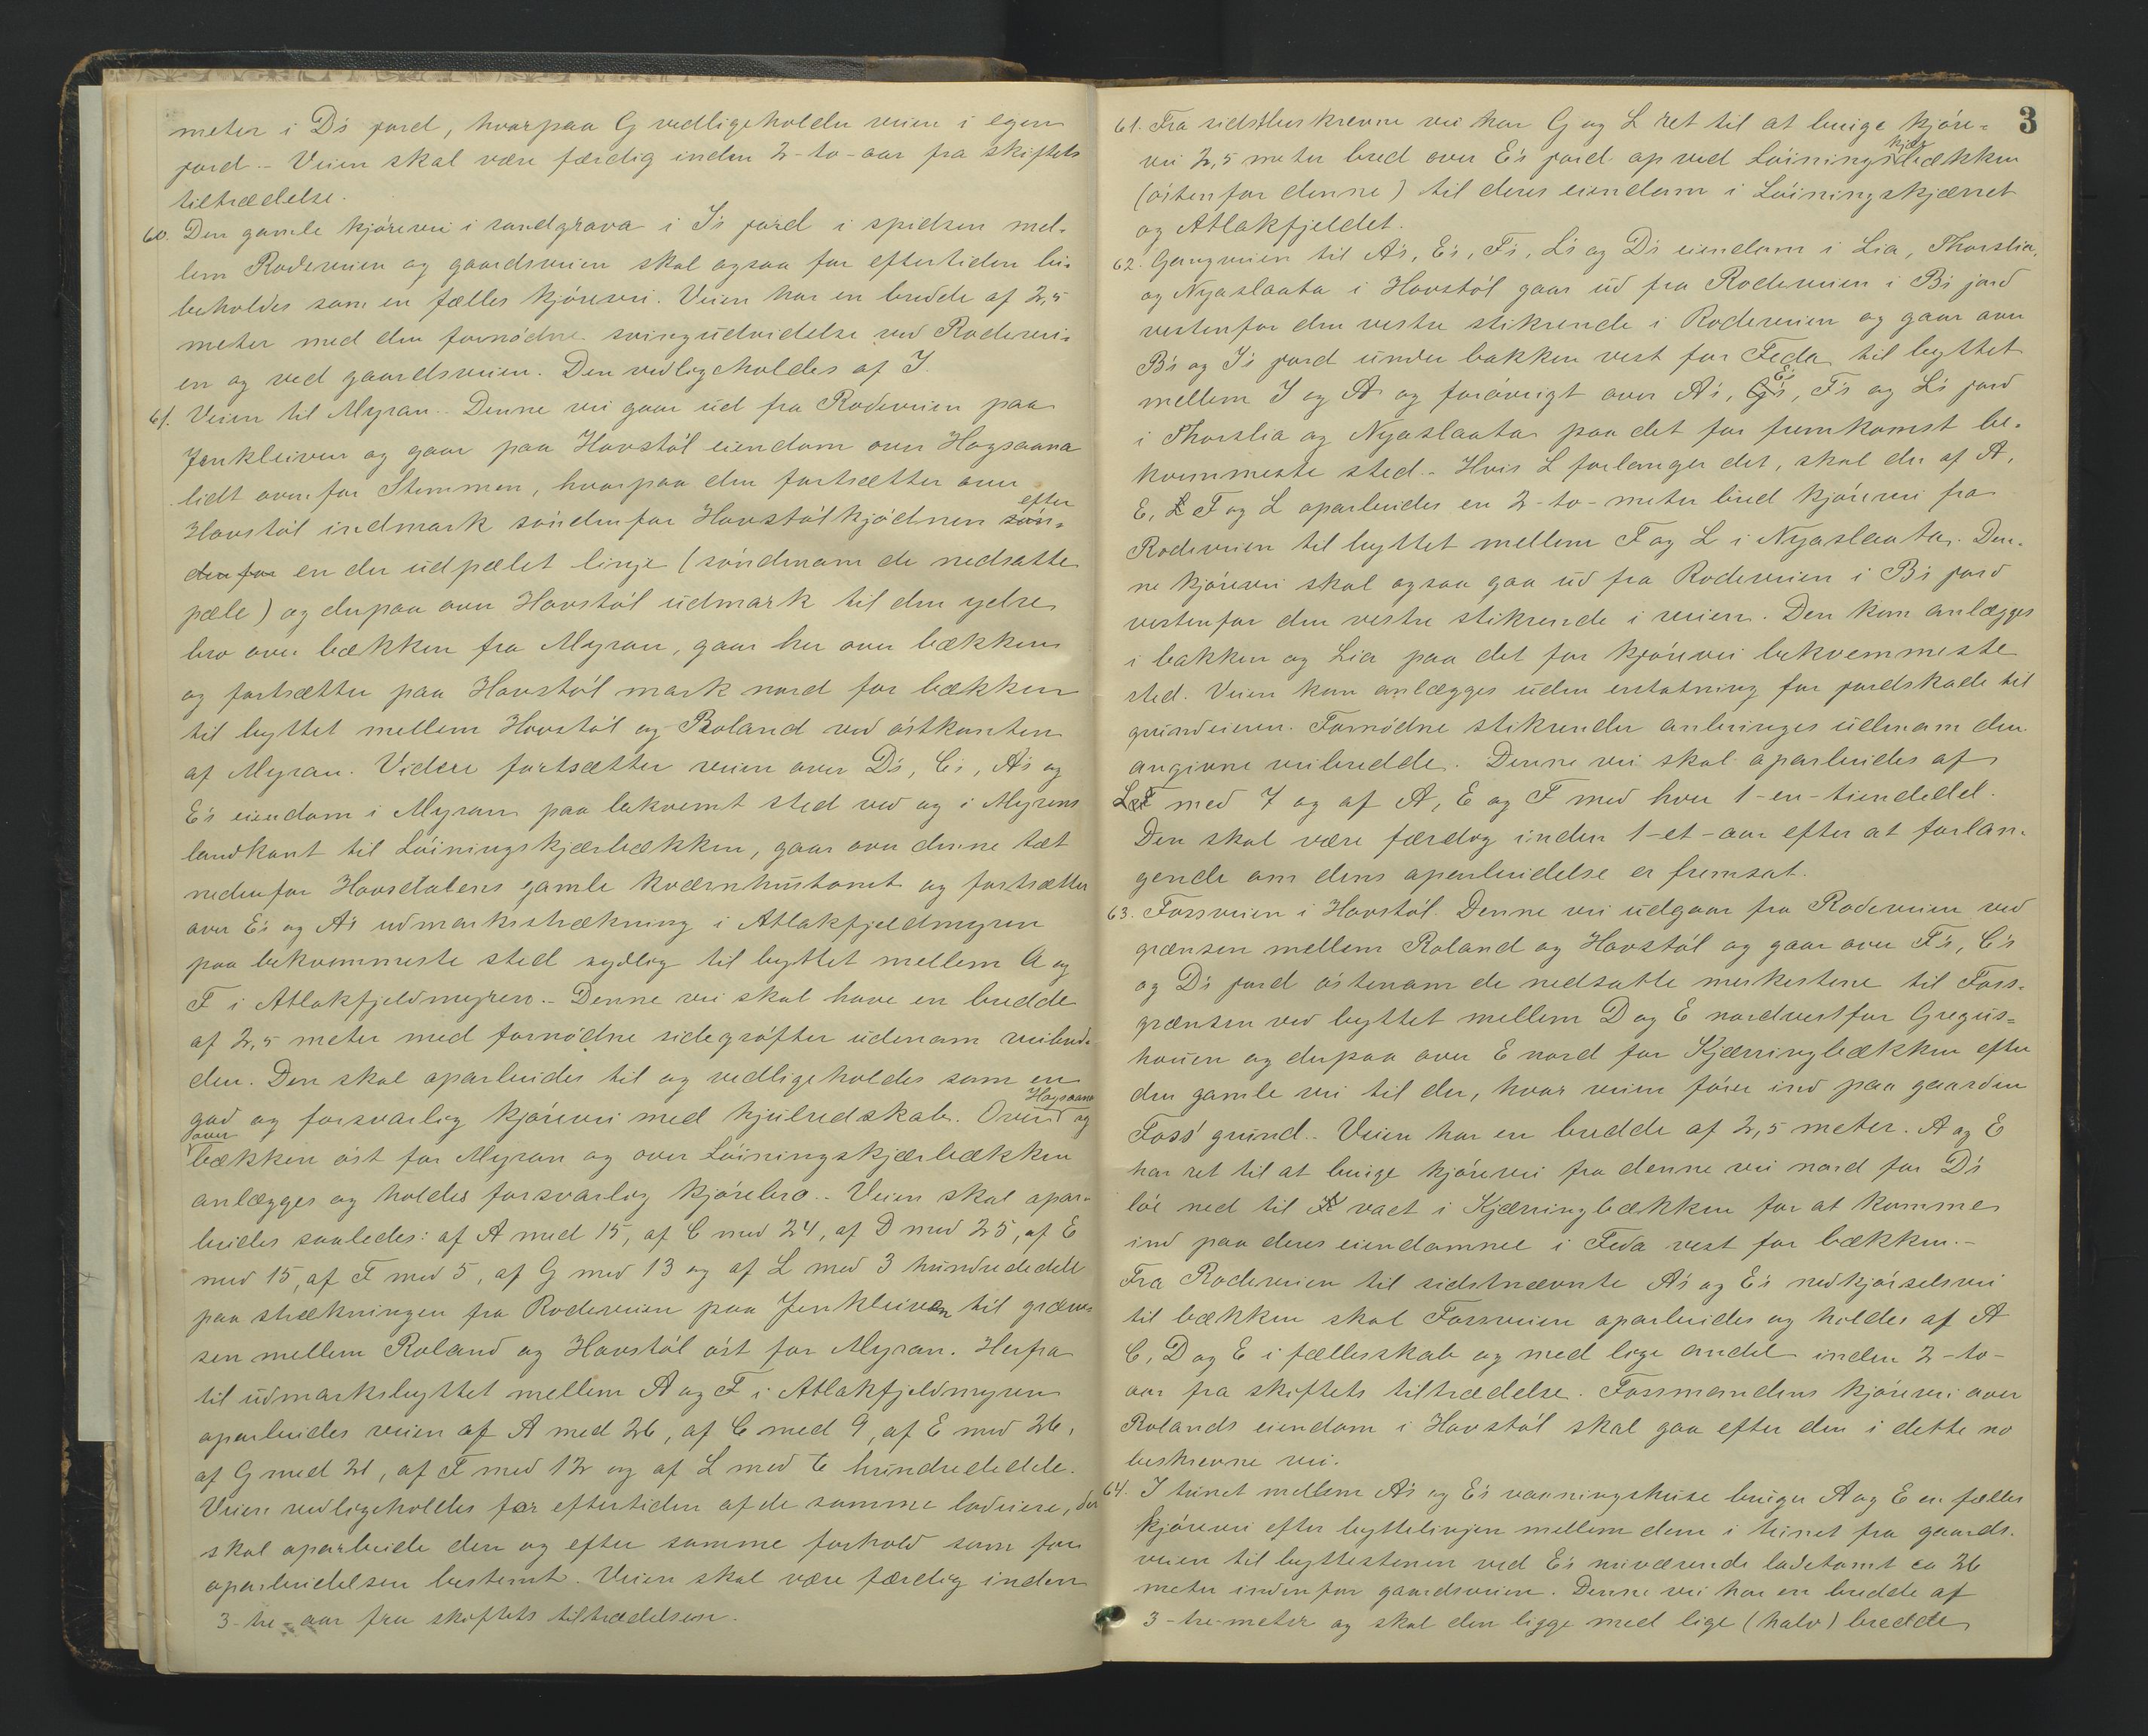 meter i D's jord, hvorpaa G vedligeholder veien i egen
jord. - Veien skal være færdig inden 2-to-aar fra skiftets
tiltrædelse.
60. Den gamle kjørevei i sandgrava i I's jord i spidsen mel-
lem Rodeveien og gaardsveien skal ogsaa for eftertiden bi-
beholdes som en fælles kjørevei. Veien har en bredde af 2,5
meter med den fornødne svingudvidelse ved Rodevei-
en og ved gaardsveien. Den vedligeholdes af I.
61. Veien til Myran. Denne vei gaar ud fra Rodeveien paa
Jenkleiven og gaar paa Hovstøl eiendom over Hagsaana
lidt ovenfor Stemmen, hvorpaa den fortsætter over
Hovstøl indmark søndenfor Hovstølkjødnen efter søn-
denfor en der udpælet linje (søndenom de nedsatte
pæle) og derpaa over Hovstøl udmark til den ydre
bro over bækken fra Myran, gaar her over bækken
og fortsætter paa Hovstøl mark nord for bækken
til byttet mellem Hovstøl og Roland ved østkanten
af Myran. Videre fortsætter veien over D's, C's, A's og
E's eiendom i Myran paa bekvemt sted ved og i Myrens
landkant til Løiningskjærbækken, gaar over denne tæt
nedenfor Hovstølens gamle kværnhustomt og fortsætter
over E's og A's udmarksstrækning i Atlakfjeldmyren
paa bekvemmeste sted sydlig til byttet mellem A og
F i Atlakfjeldmyren. - Denne vei skal have en bredde
af 2,5 meter med fornødne sidegrøfter udenom veibred-
den. Den skal oparbeides til og vedligeholdes som en
god og forsvarlig kjørevei med hjulredskab. Over Hagsaana og
over bækken øst for Myran og over Løiningskjærbækken
anlægges og holdes forsvarlig kjørebro. - Veien skal opar-
beides saaledes: af A med 15, af C med 24, af D med 25, af E
med 15, af F med 5, af G med 13 og af L med 3 hundrededele
paa strækningen fra Rodeveien paa Jenkleiven til græn-
sen mellem Roland og Hovstøl øst for Myran. Herfra
til udmarksbyttet mellem A og F i Atlakfjeldmyren
oparbeides veien af A med 26, af C med 9, af E med 26,
af G med 21, af F med 12 og af L med 6 hundrededele.
Veien vedligeholdes for eftertiden af de samme lodeiere, der
skal oparbeide den og efter samme forhold som for
oparbeidelsen bestemt. Veien skal være færdig inden
3-tre-aar fra skiftets tiltrædelsen.
3
61. Fra sidstbeskrevne vei har G og L ret til at bruge kjøre-
vei 2,5 meter bred over E's jord op ved Løiningskjærbækken
(østenfor denne) til deres eiendom i Løiningskjærret
og Atlakfjeldet.
62. Gangveien til A's, E's, F's, L's og D's eiendom i Lia, Thorslia,
og Nyaslaata i Hovstøl gaar ud fra Rodeveien i B's jord
vestenfor den vestre stikrende i Rodeveien og gaar over
B's og I's jord under bakken vest for Feda til byttet
mellem I og A og forøvrigt over A's, G's E's, F's og L's jord
i Thorslia og Nyaslaata paa det for fremkomst be-
kvemmeste sted. - Hvis L forlanger det, skal der af A,
E, L F og L oparbeides en 2-to-meter bred kjørevei fra
Rodeveien til byttet mellem F og L i Nyaslaata. Den-
ne kjørevei skal ogsaa gaa ud fra Rodeveien i B's jord
vestenfor den vestre stikrende i veien. Den kan anlægges
i bakken og Lia paa det for kjørevei bekvemmeste
sted. Veien kan anlægges uden erstatning for jordskade til
grundeieren. Fornødne stikrender anbringes udenom den
angivne veibredde. Denne vei skal oparbeides af
L med 7 og af A, E og F med hver 1-en-tiendedel.
Den skal være færdig inden 1-et-aar efter at forlan-
gende om dens oparbeidelse er fremsat.
63. Fossveien i Hovstøl. Denne vei udgaar fra Rodeveien ved
grænsen mellem Roland og Hovstøl og gaar over F's, C's
og D's jord østenom de nedsatte merkestene til Foss-
grænsen ved byttet mellem D og E nordvest for Gregus-
houen og derpaa over E nord for Kjærringbækken efter
den gamle vei til der, hvor veien fører ind paa gaarden
Foss' grund. - Veien har en bredde af 2,5 meter. A og E
har ret til at bruge kjørevei fra denne vei nord for D's
løe ned til vaet i Kjærringbækken for at komme
ind paa deres eiendomme i Feda vest for bækken. -
Fra Rodeveien til sidstnævnte A's og E's nedkjørselsvei
til bækken skal Fossveien oparbeides og holdes af A
C, D og E i fællesskab og med lige andel inden 2-to-
aar fra skiftets tiltrædelse. Fossmændens kjørevei over
Rolands eiendom i Hovstøl skal gaa efter den i dette no
beskrevne vei.
64. I tunet mellem A's og E's vaaningshuse bruger A og E en fælles
kjørevei efter byttelinjen mellem dem i tunet fra gaards-
veien til byttestenen ved E's nuværende ladetomt ca 26
meter indenfor gaardsveien. Denne vei har en bredde af
3-tre-meter og skal den ligge med lige (halv) bredde